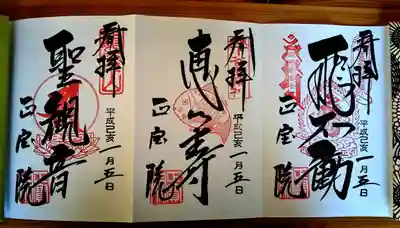 奉拝
飛不動
平成己亥
一月五日
正宝院
奉拝
恵比寿
平成己亥
一月五日
正宝院
奉拝
聖観音
平成己亥
一月五日
正宝院